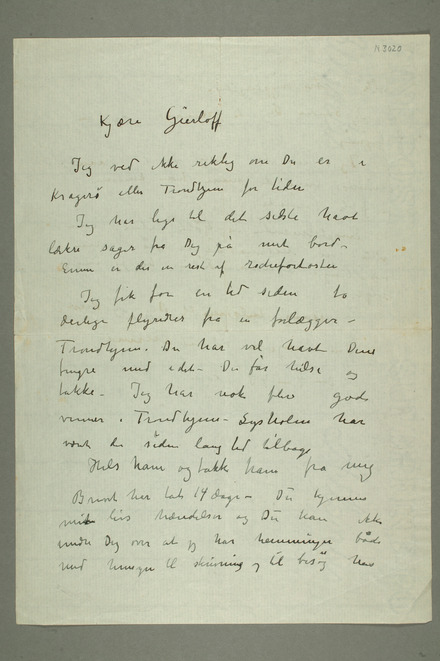 N 3020
Kjære Gierløff
Jeg ved ikke riktig om Du er i
Kragerø eller Trondhjem for tiden
Jeg har lige til det sidste havt
lækre sager fra Dig på mit bord –
Ennu er der en rest af
Jeg fik for en tid siden to
deilige flyndrer fra en forlægger –
Trondhjem. Du har vel havt Dine
fingre med i det – Du får hilse og
takke – Jeg har nok flere gode
venner i Trondhjem – Lysholm har
vært der siden lang tid tilbage
Hils ham og takk ham fra mig
Brevet her tok 14 dage – Du kjenner
mit livs hændelser og Du kan ikke
undre Dig over at jeg har hemninger både
med hensyn til skrivning og til besøg